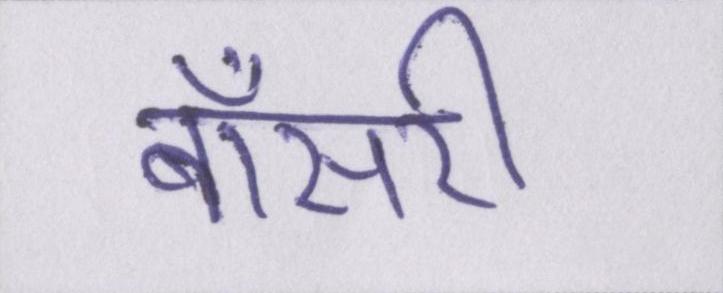 बाँसरी